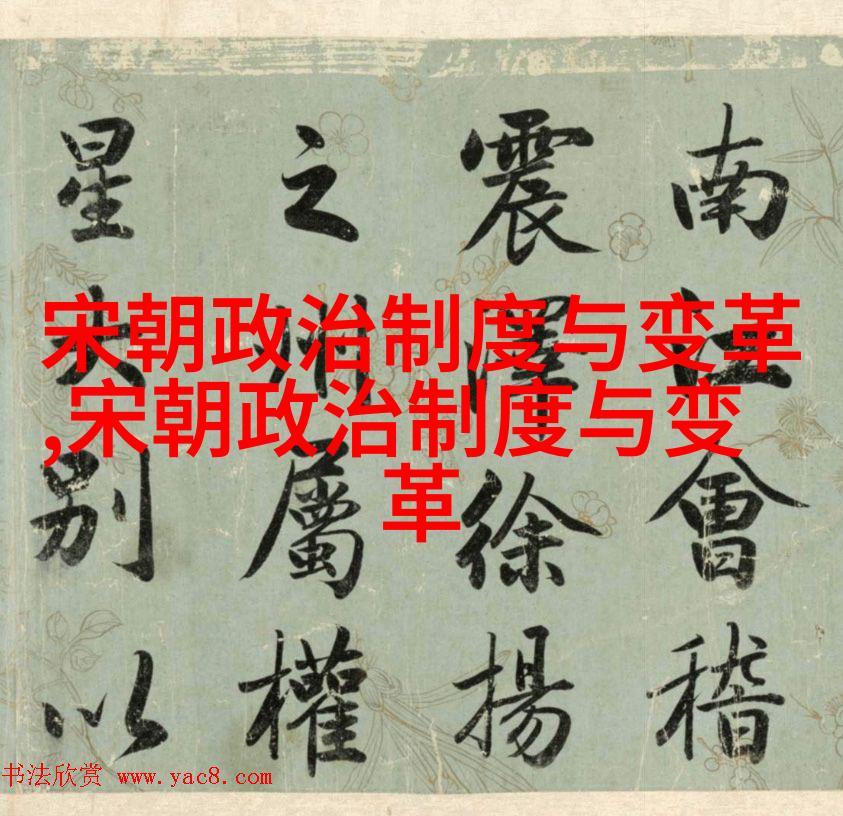 宋朝政治制度与变革
,宋朝政治制度与变
革
南江會稽
震澤徐揚
之州屬權
星別以
书法欣赏 www.yac8.com